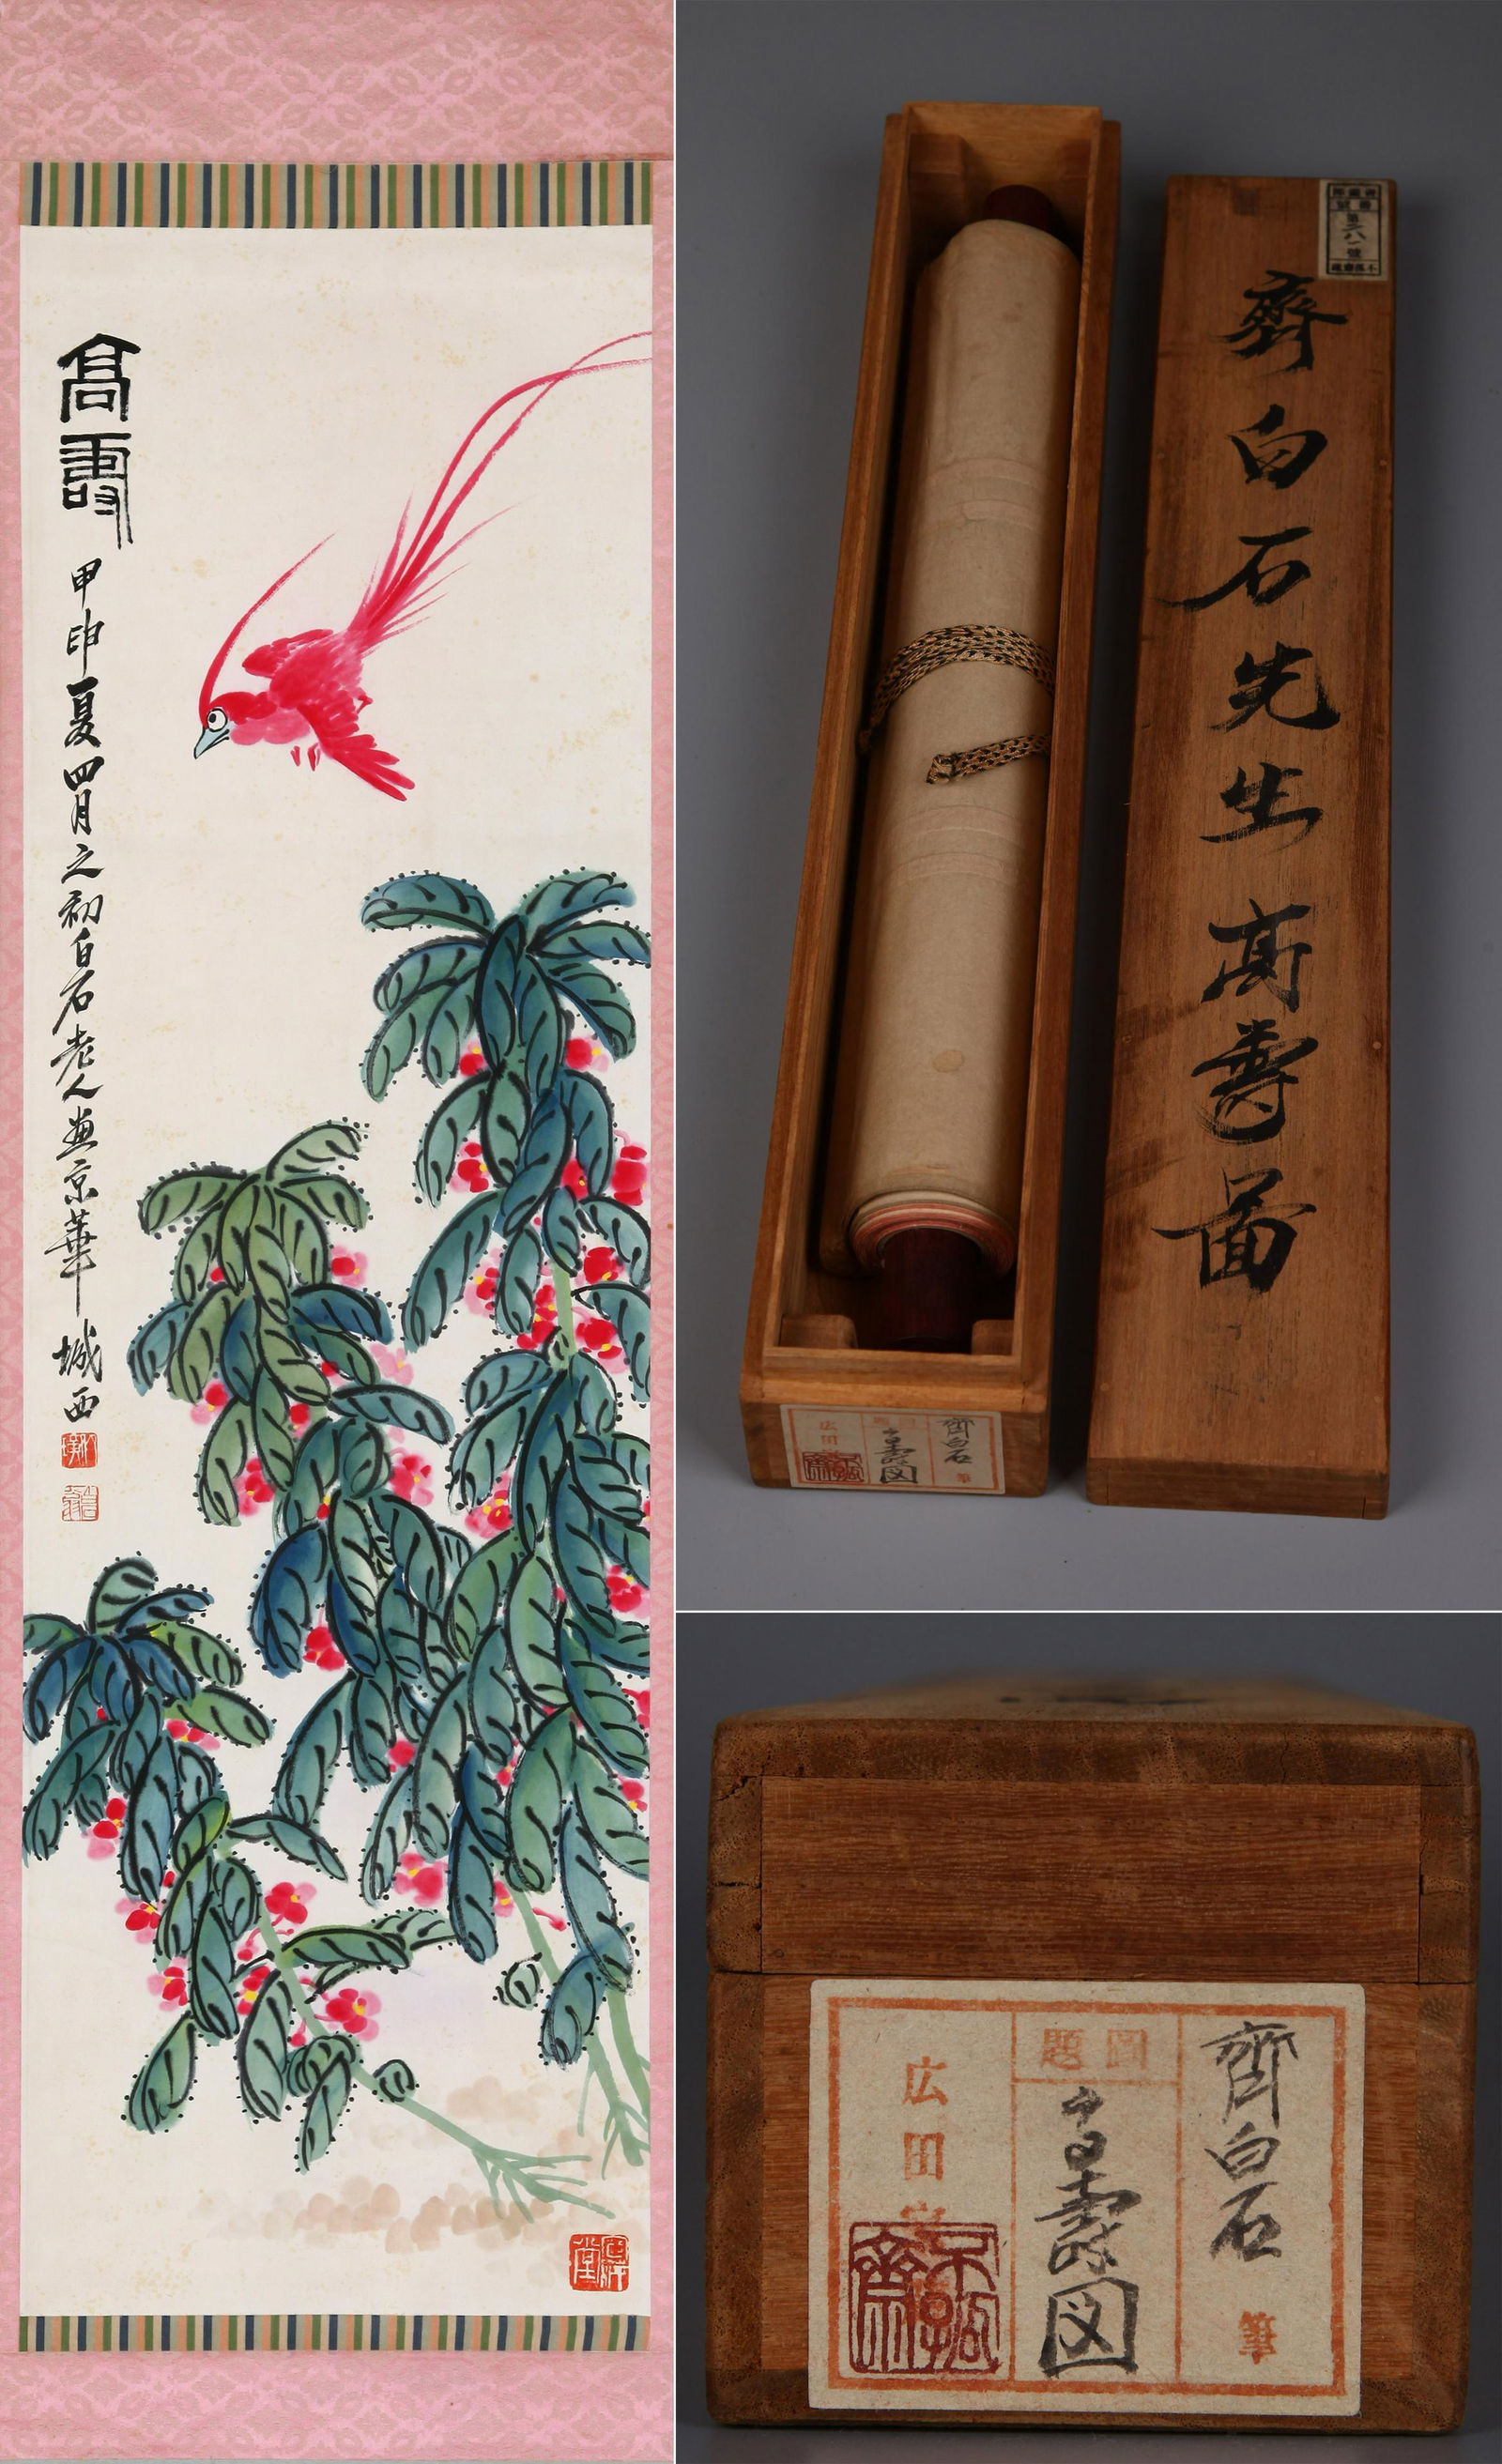 高壽
甲申夏四月之初白石老人畫京華城西
齊白石先生 高壽圖
齊白石 筆
高壽図
広田
齊白石 筆
圖題
高壽図
広田
不孤齋